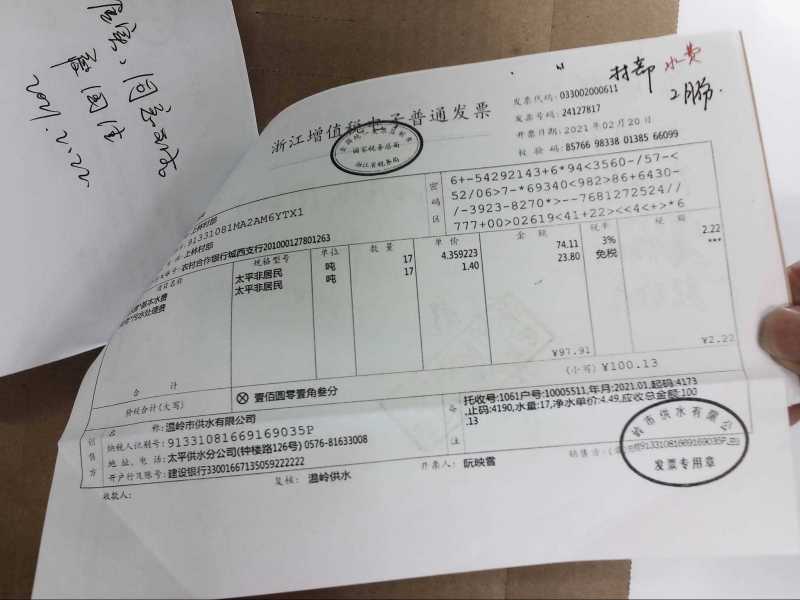 2021.2.22
村部 水费
2月份
浙江增值税电子普通发票
国家税务总局
浙江省税务局
发票代码: 033002000611
发票号码: 24127817
开票日期: 2021年02月20日
校验码: 85766 98338 01385 66099
上林村部
91331081MA2AM6YTX1
上林村部
农村合作银行城西支行201000127801263
密码区
6+-54292143+6*94<3560-/57-<
52/06>7-*69340<982>86+6430-
/-3923-8270*>--7681272524//
777+00>02619<41+22><<4<+>*6
规格型号 单位 数量 单价 金额 税率 税额
基本水费 太平非居民 吨 17 4.359223 74.11 3% 2.22
污水处理费 太平非居民 吨 17 1.40 23.80 免税 ***
合计 ¥97.91 ¥2.22
价税合计(大写) ⊗ 壹佰圆零壹角叁分 (小写) ¥100.13
销售方
名称: 温岭市供水有限公司
纳税人识别号: 91331081669169035P
地址、电话: 太平供水分公司(钟楼路126号) 0576-81633008
开户行及账号: 建设银行33001667135059222222
备注
托收号:1061户号:10005511,年月:2021.01,起码:4173
,止码:4190,水量:17,净水单价:4.49,应收总金额:100
.13
收款人: 复核: 温岭供水 开票人: 阮映雪 销售方:(章)
岭市供水有限公
91331081669169035P
发票专用章